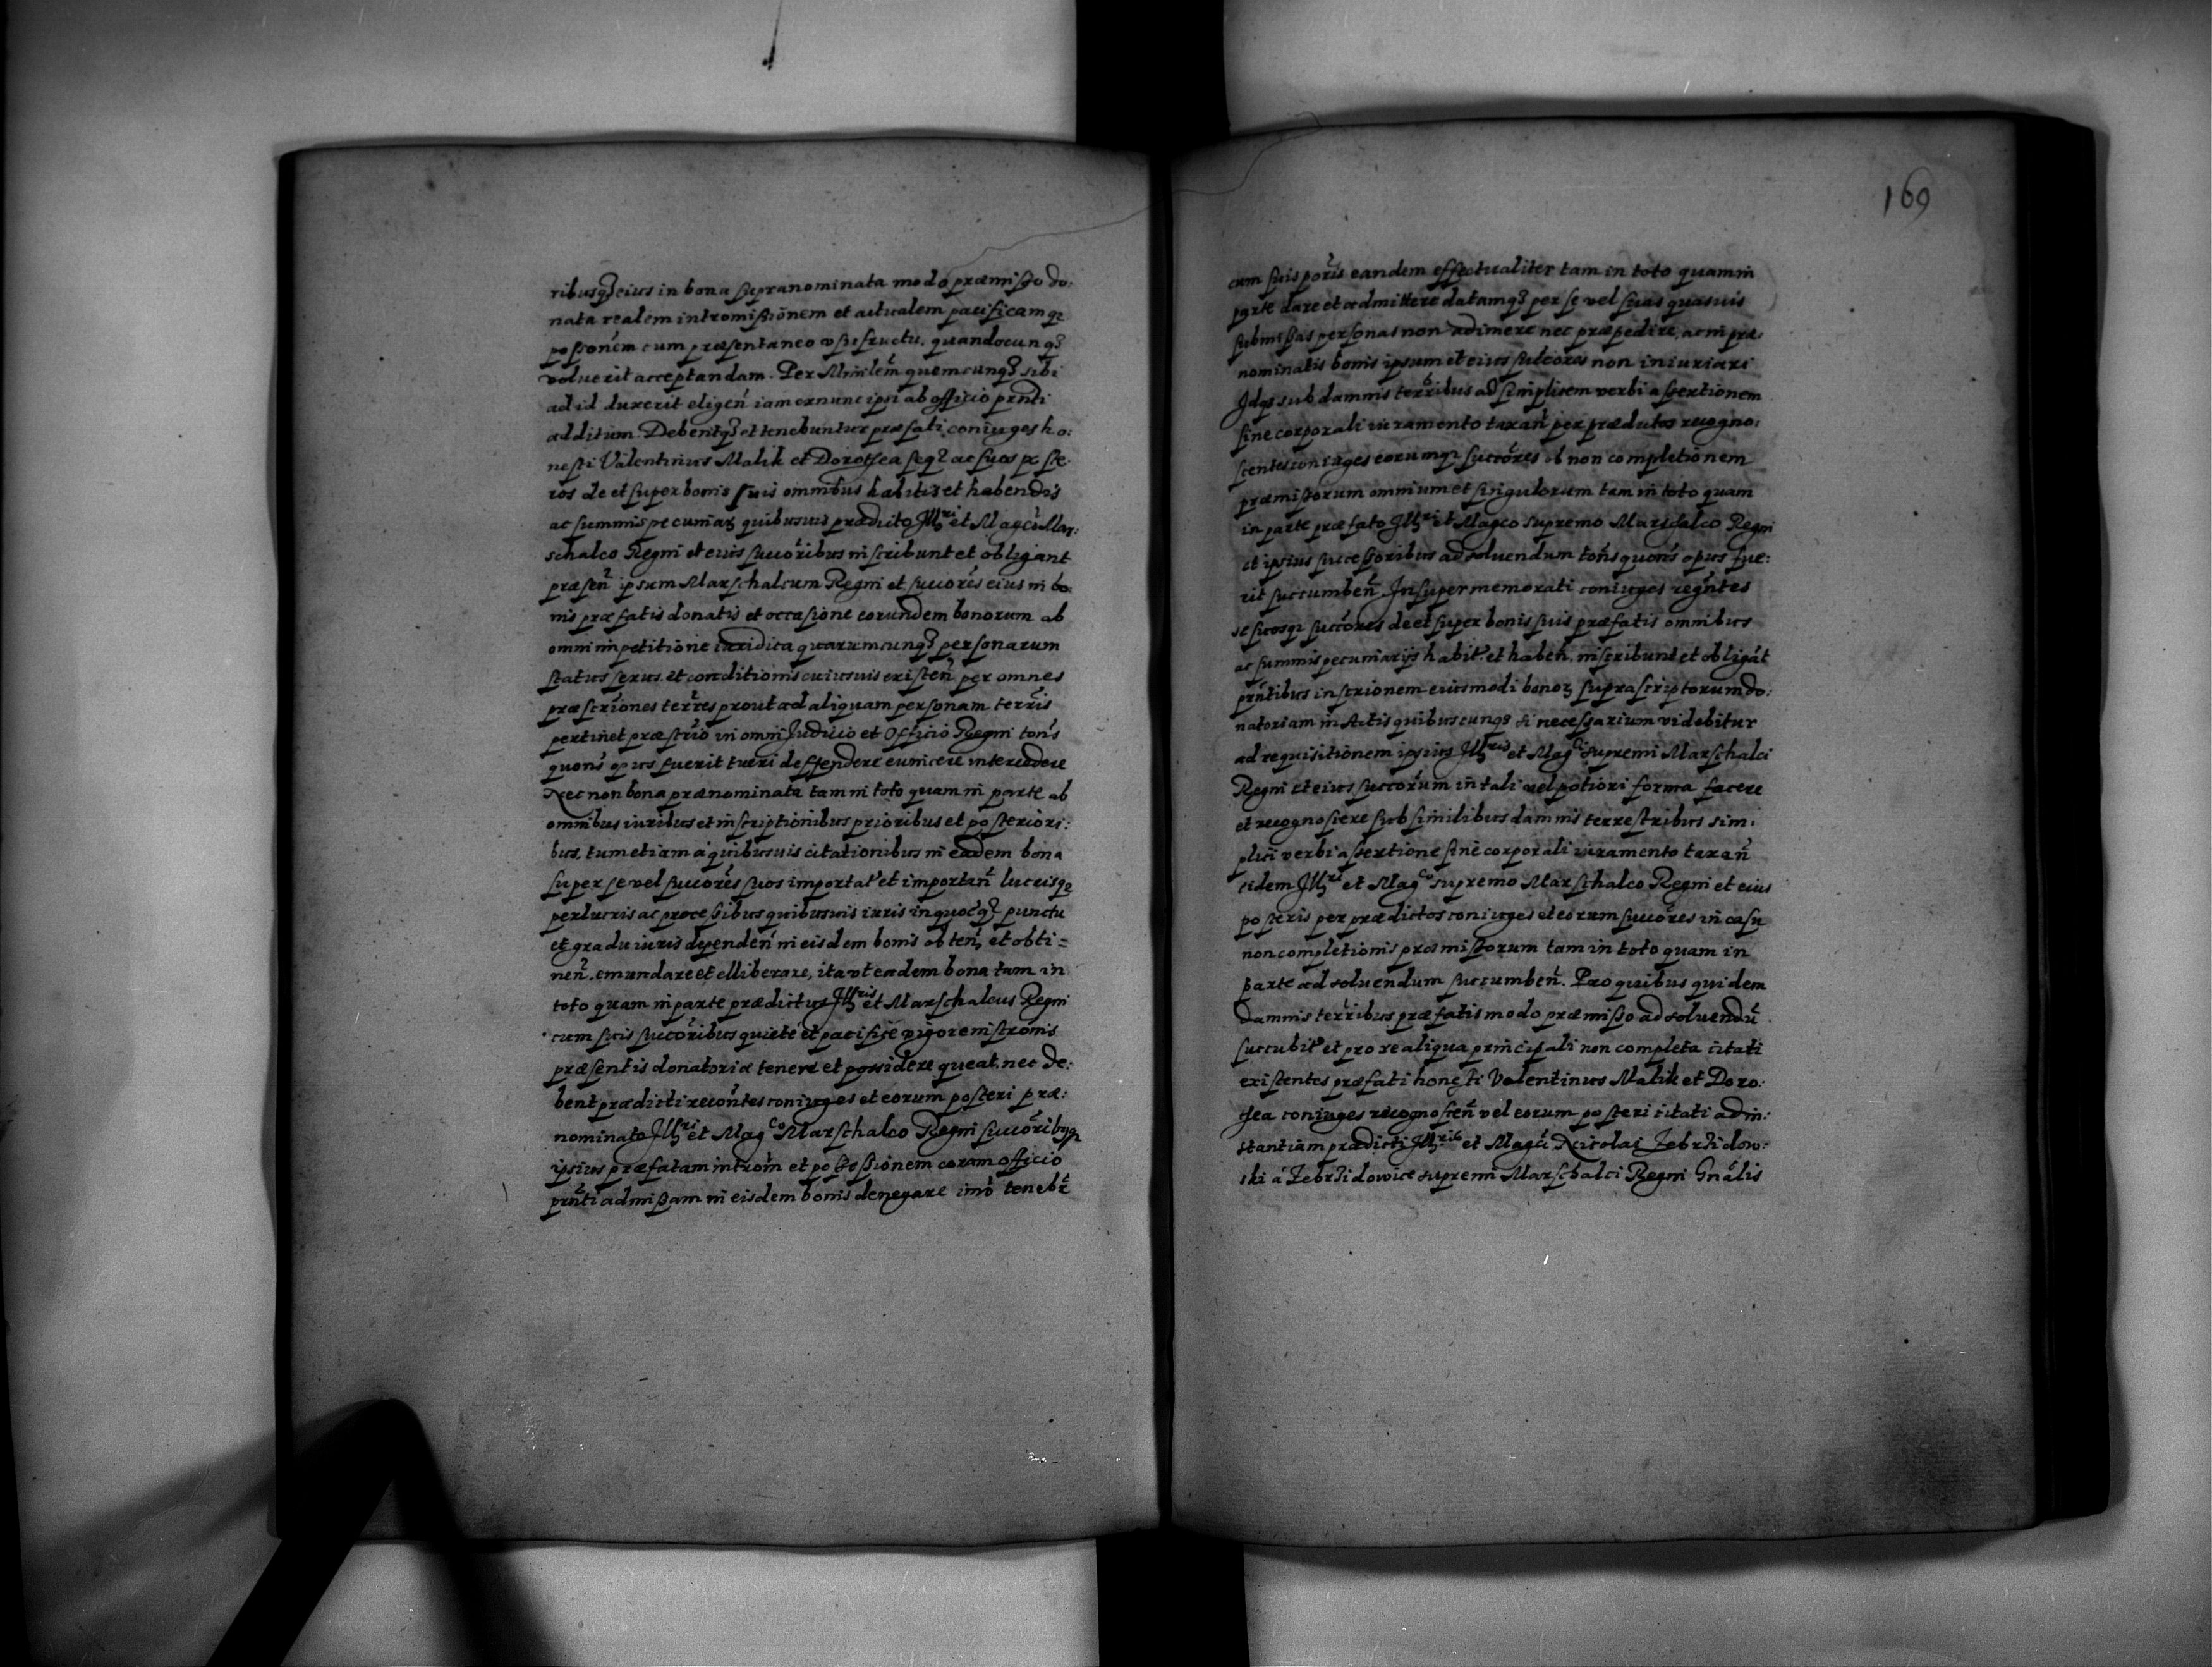 ribusq; eius in bona supranominata modo præmisso do:
nata realem intromissionem et actualem pacificamq;
possonem cum præsentaneo vsufructu, quandocunq;
voluerit acceptandam. Per Minlem quemcunq; sibi
ad id duxerit eligen iam exnunc ipsi ab officio prnti
additum. Debentq; et tenebuntur præfati coniuges ho:
nesti Valentinus Malik et Dorothea seq; ac suos poste
ros de et super bonis suis omnibus habitis et habendis
ac summis pecuniar; quibusuis prædicto Illri et Magco Mar:
schalco Regni et eius succoribus inscribunt et obligant
præsen ipsum Marschalcum Regni et succores eius in bo
nis præfatis donatis et occasione eorundem bonorum ab
omni impetitione iuridica quarumcunq; personarum
status sexus et conditionis cuiusuis existen per omnes
præscriones terres prout ad aliquam personam terris
pertinet præstrio in omni Judicio et Officio Regni tons
quons opus fuerit tueri deffendere euincere intercedere
Nec non bona prænominata tam in toto quam in parte ab
omnibus iuribus et inscriptionibus prioribus et posteriori:
bus, tum etiam a quibusuis citationibus in eadem bona
super se vel succores suos importat et importan lucrisq;
perlucris ac processibus quibusuis iuris in quocq; punctu
et gradu iuris dependen in eisdem bonis obten, et obti=
nen. emundare et elliberare, ita vt eadem bona tam in
toto quam in parte prædictus Illris et Marschalcus Regni
cum suis succoribus quiete et pacifice vigore inscronis
præsentis donatoriæ tenere et possidere queat, nec de:
bent prædicti recontes coniuges et eorum posteri præ:
nominato Illri et Magco Marschalco Regni succoribusq;
ipsius præfatam introm et possessionem coram officio
prnti admissam in eisdem bonis denegare imo tenebr
169
cum suis poris eandem effectualiter tam in toto quam in
parte dare et admittere datamq; per se vel suas quasuis
submissas personas non adimere nec præpedire, ac in præ:
nominatis bonis ipsum et eius succores non iniuriari
Idq; sub damnis terribus ad simplicem verbi assertionem
sine corporali iuramento taxan per prædictos recogno:
scentes coniuges eorumq; succores ob non completionem
præmissorum omnium et singulorum tam in toto quam
in parte præfato Illri et Magco supremo Marschalco Regni
et ipsius successoribus ad soluendum tons quons opus fue:
rit succumben. Insuper memorati coniuges regntes
se suosq; succores de et super bonis suis præfatis omnibus
ac summis pecuniarijs habit et haben, inscribunt et obligat
prntibus inscrionem eiusmodi bonor; suprascriptorum do:
natoriam in Actis quibuscunq; si necessarium videbitur
ad requisitionem ipsius Illris et Magci supremi Marschalci
Regni et eius succorum in tali vel potiori forma facere
et recognoscere sub similibus damnis terrestribus sim:
plici verbi assertione sine corporali iuramento taxan
eidem Illri et Magco supremo Marschalco Regni et eius
posteris per prædictos coniuges et eorum succores in casu
non completionis præmissorum tam in toto quam in
parte ad soluendum succumben. Pro quibus quidem
damnis terribus præfatis modo præmisso ad soluendu
succubit et pro re aliqua principali non completa citati
existentes præfati honesti Valentinus Malik et Doro:
thea coniuges recognoscen vel eorum posteri citati ad in:
stantiam prædicti Illris et Magci Nicolai Zebrzidow:
ski a Zebrzidowice supremi Marschalci Regni Gnalis